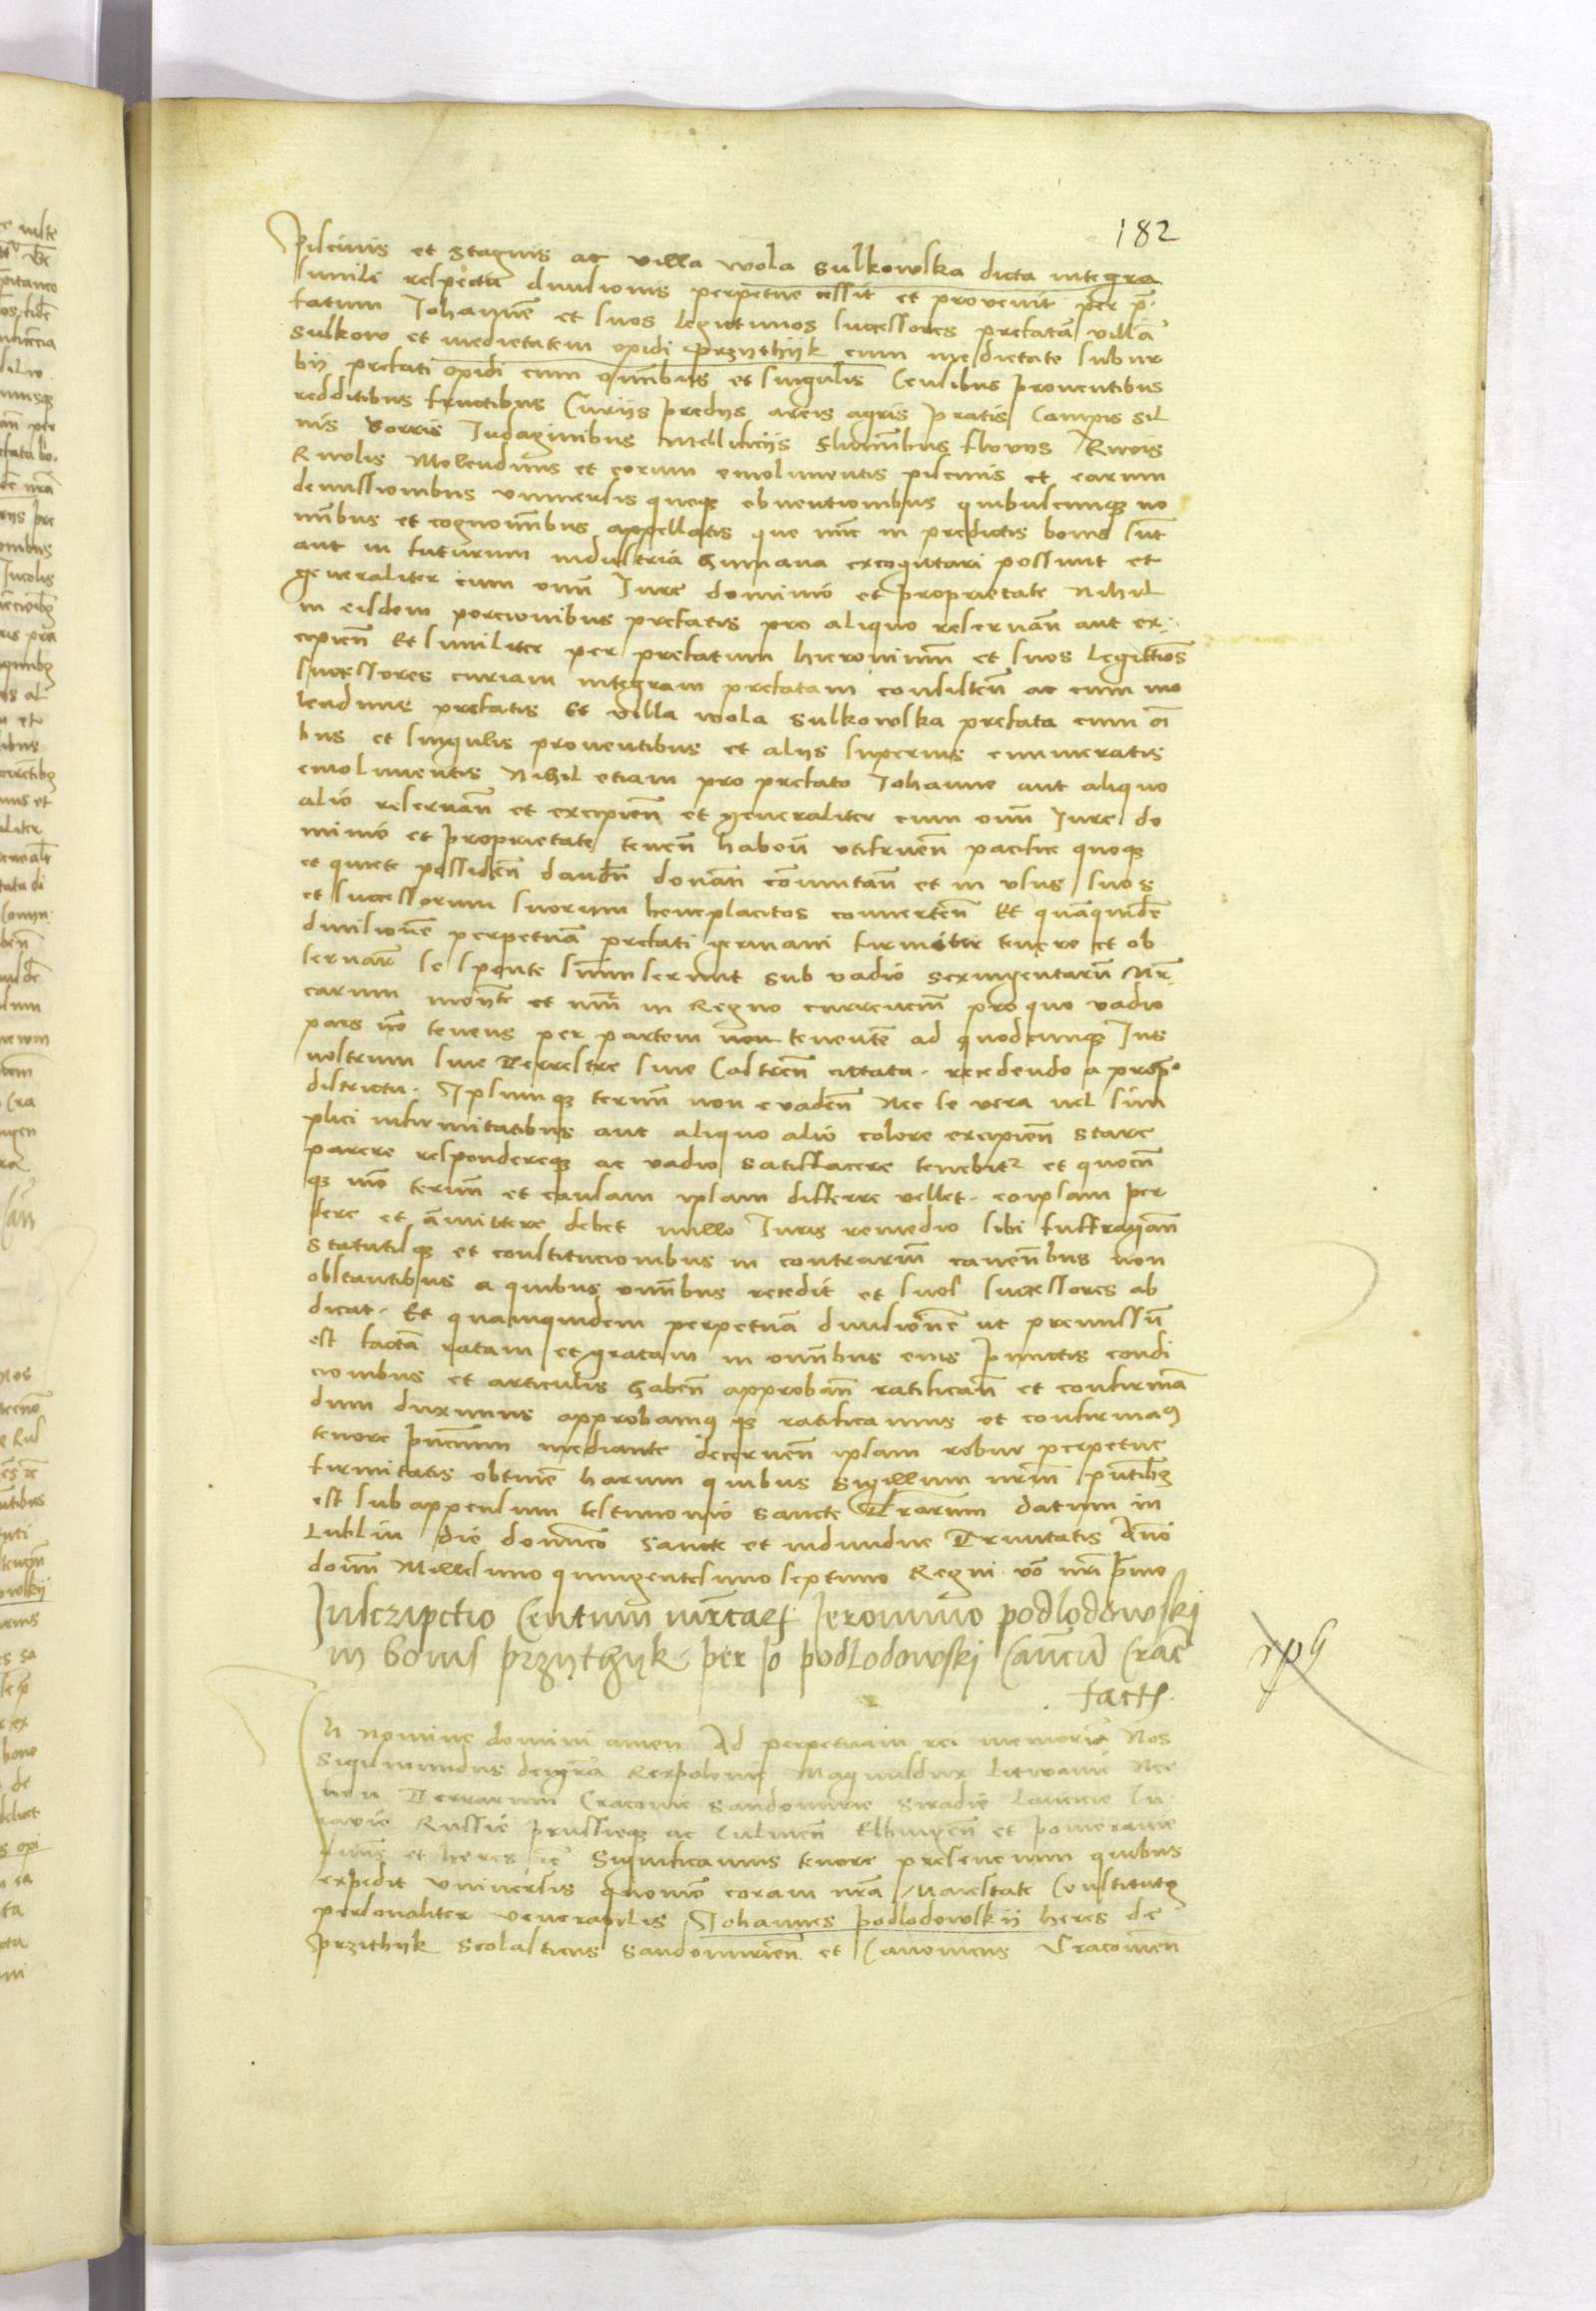 182
piscinis et stagnis ac villa wola sulkowska dicta integra
simile respectu divisionis perpetue cessit et provenit per p̄-
fatum Johannē et suos legittimos successores prefatā villā
sulkow et medietatem opidi przythÿk cum medietate subur
bÿ prefati opidi cum om̄ibus et singulis Censibus proventibus
redditibus fructibus Curÿs predÿs areis agris pratis Campis sil
vis Borris Indaginibus mellificÿs flumībus fluvÿs Rivis
Rivolis Molendinis et eorum emolumentis piscinis et earum
demissionibus universis queqʒ obventionibus quibuscumqʒ no
mībus et cognomībus appellatis que nūc in predictis bonis sūt
aut in futurum industria humana excogittari possunt et
generaliter cum omī Jure dominio et proprietate Nihil
in eisdem porcionibus prefatis pro aliquo reservan̄ aut ex-
cipien̄ Et similiter per prefatum hieronimū et suos legitt̄ios
successores curiam integram prefatam consisten̄ ac cum mo
lendinis prefatis Et villa wola sulkowska prefata cum om̄
bus et singulis proventibus et alÿs superius enumeratis
emolumentis Nihil etiam pro prefato Johanne aut aliquo
alio reservan̄ et excipien̄ et generaliter cum omī Jure do
minio et proprietate tenen̄ haben̄ utifruen̄ pacifice quoqʒ
et quiete possiden̄ dandū donan̄ com̄utan̄ et in usus suos
et successorum suorum beneplacitos converten̄ Et quāquidē
divisionē perpetuā prefati germani firmiter tenere et ob
servare se sponte sūmiserunt sub vadio sexingentarū Mr̄
carum mon̄te et nūi in Regno curren̄ciū pro quo vadio
pars nō tenens per partem non tenentē ad quodcumqʒ Jus
nostrum sive Terrestre sive Castren̄ cittata recedendo a prop̄o
districtu Ipsumqʒ termī non evaden̄ Nec se vera vel sim
plici infirmitatibus aut aliquo alio colore excipien̄ stare
parere respondereqʒ ac vadio satisfacere tenebit᷑ et quocū
qʒ mō termī et causam ipsam differre vellet eo ipsam per
dere et amittere debet nullo Juris remedio sibi suffragan̄
statutisqʒ et constitucionibus in contrariū caven̄bus non
obstantibus a quibus om̄ibus recedit et suos successores ab
dicat Et quamquidem perpetuā divisionē ut premissū
est factā ratam et gratam in om̄ibus eius punctis condi
cionibus et articulis haben̄ approban̄ ratifican̄ et confirmā
dum duximus approbamusqʒ ratificamus et confirmaꝯ
tenore pn̄cium mediante decernen̄ ipsam robur perpetue
firmitatis obtinē harum quibus sigillum nr̄m pn̄tibʒ
est subappensum testimonio sancte l̄rarum datum in
Lublin die dominico Sancte et individue Trinitatis Anō
domī Millesimo quingentesimo septimo Regni vō nr̄i p̄mo
Inscripctio Centum mr̄caꝝ Jeronimo podlodowskj
in bonis przÿthÿk per Jo podlodowskj Can̄cū Crac̄
factꝭ
In nomine domini amen Ad perpetuam rei memoriā Nos
Sigismundus dei gr̄a Rex polonie Magnusdux Litwanie Nec
non Terrarum Cracovie Sandomirie Siradie Lancicie Cu
iavie Russie prussieqʒ ac Culmen̄ Elbingen̄ et pomeranie
dn̄us et heres ꝛc̄ Significamus tenore presencium quibus
expedit universis quomō coram nr̄a Maiestate Constitutꝰ
personaliter venerabilis Johannes podlodowskÿ heres de
przithÿk Scolasticus Sandomirien̄ et Canonicus Cracovien̄